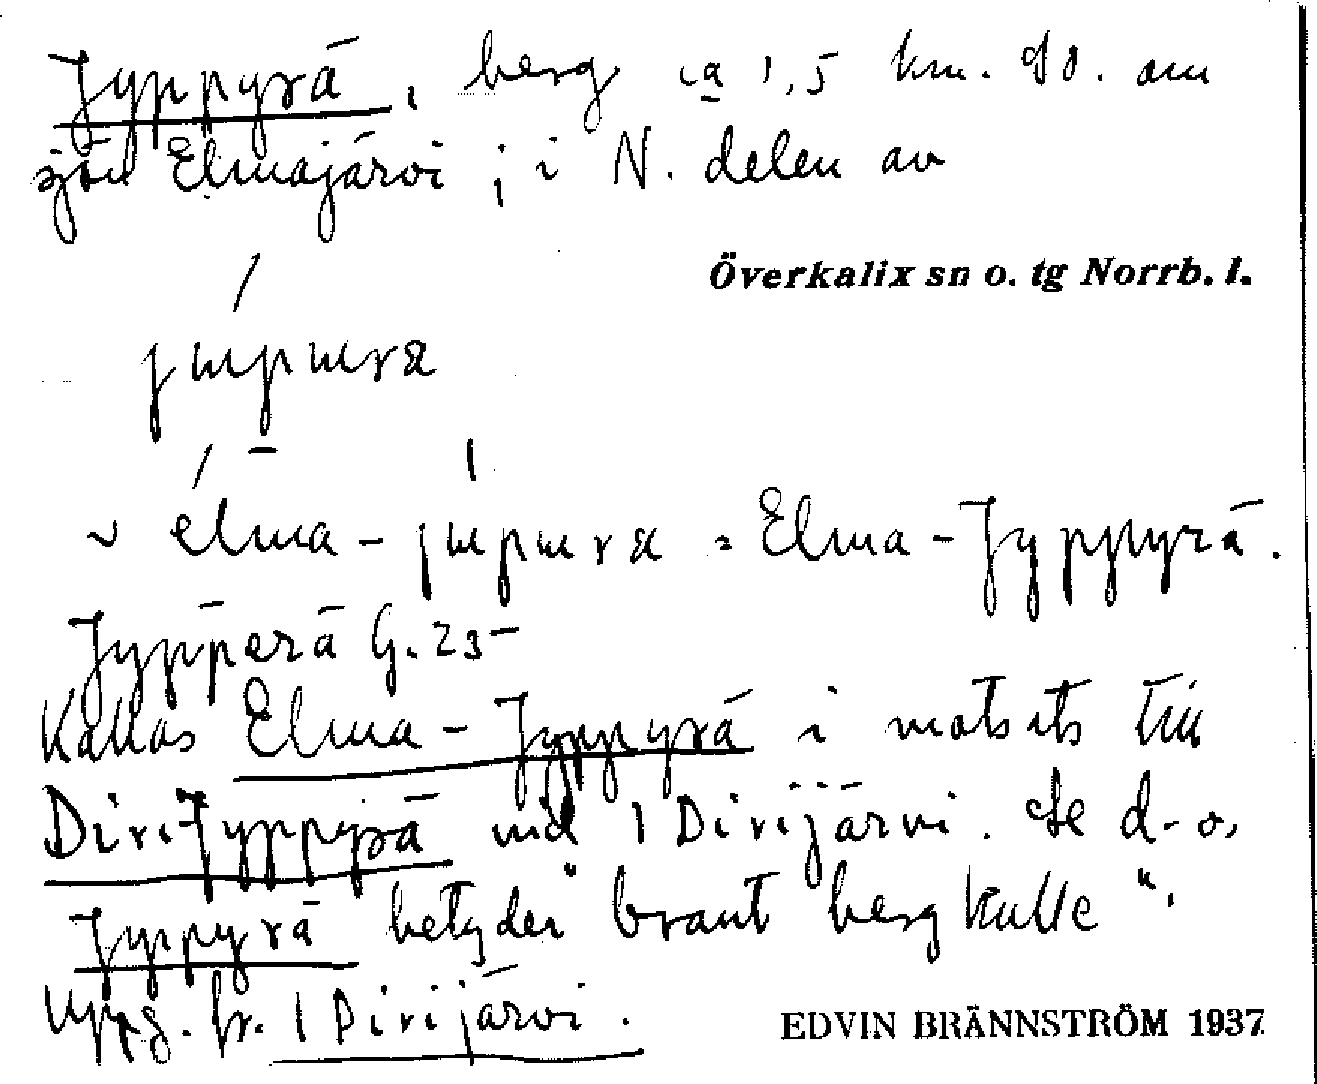 Jyppyrä, berg ca 1,5 km. SO. om
sjön Elmajärvi; i N. delen av
Överkalix sn o. tg Norrb. l.
Elma-Jyppyrä.
Jypperä G. 23
Kallas Elma-Jyppyrä i motsats till
DiviJyppyrä vid Divijärvi. Se d-o.
Jyppyrä betyder "brant bergkulle".
Uppg. fr. Divijärvi.
EDVIN BRÄNNSTRÖM 1937